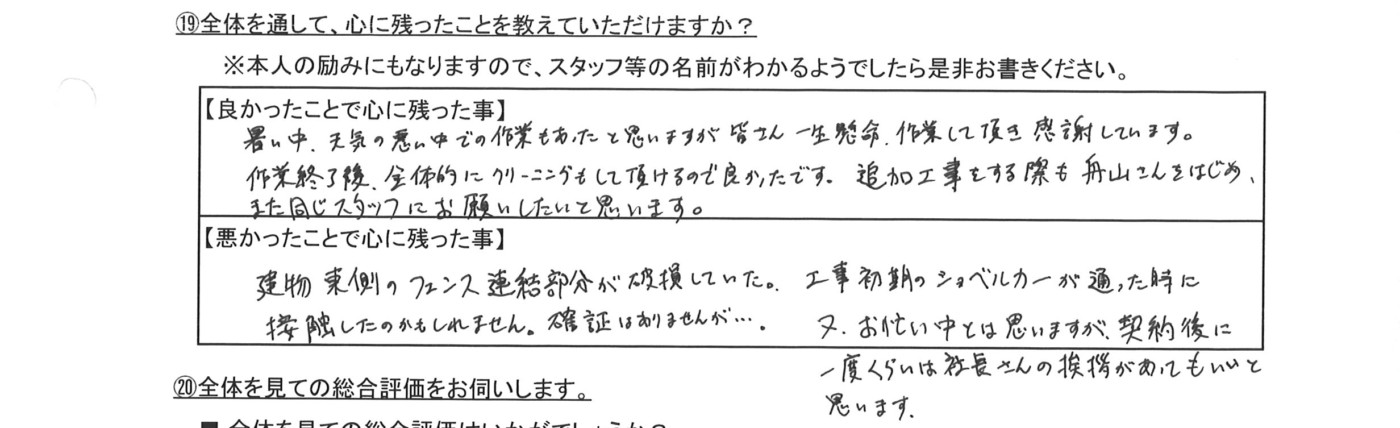 ⑲全体を通して、心に残ったことを教えていただけますか？
※本人の励みにもなりますので、スタッフ等の名前がわかるようでしたら是非お書きください。
【良かったことで心に残った事】
暑い中、天気の悪い中での作業もあったと思いますが皆さん一生懸命、作業して頂き感謝しています。
作業終了後、全体的にクリーニングもして頂けるので良かったです。追加工事をする際も舟山さんをはじめ、
また同じスタッフにお願いしたいと思います。
【悪かったことで心に残った事】
建物東側のフェンス連結部分が破損していた。工事初期のショベルカーが通った時に
接触したのかもしれません。確証はありませんが…。又、お忙い中とは思いますが、契約後に
一度くらいは社長さんの挨拶があってもいいと
思います。
⑳全体を見ての総合評価をお伺いします。
■ 全体を見ての総合評価はいかがでしょうか？